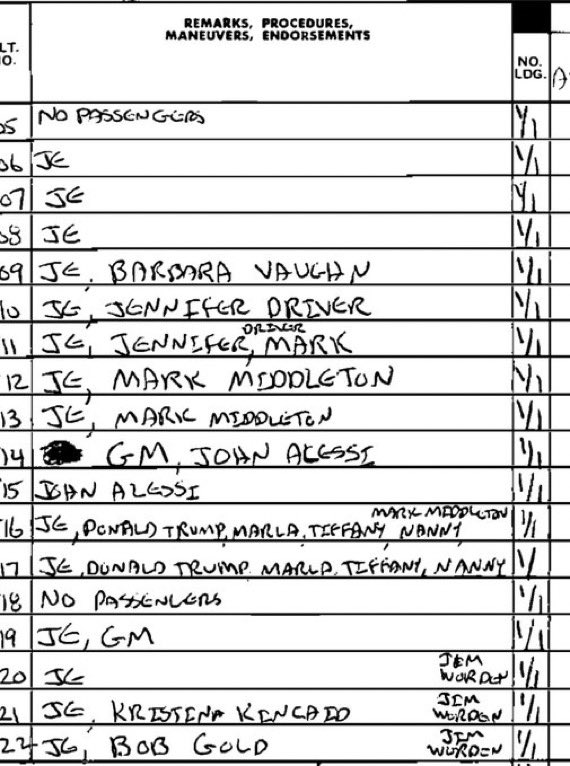 REMARKS, PROCEDURES,
MANEUVERS, ENDORSEMENTS
LT.
O.
NO.
LDG.
05 NO PASSENGERS 1/1
06 JE 1/1
07 JE 1/1
08 JE 1/1
09 JE, BARBARA VAUGHN 1/1
10 JE, JENNIFER DRIVER 1/1
DRIVER
11 JE, JENNIFER, MARK 1/1
12 JE, MARK MIDDLETON 1/1
13 JE, MARK MIDDLETON 1/1
14 GM, JOHN ALESSI 1/1
15 JOHN ALESSI 1/1
MARK MIDDLETON
16 JE, DONALD TRUMP, MARLA, TIFFANY NANNY 1/1
17 JE, DONALD TRUMP, MARLA, TIFFANY, NANNY 1/
18 NO PASSENGERS 1/1
19 JE, GM 1/1
20 JE JEM WORDEN 1/1
21 JE, KRISTINA KINCAID JIM WORDEN 1/1
22 JE, BOB GOLD JIM WORDEN 1/1